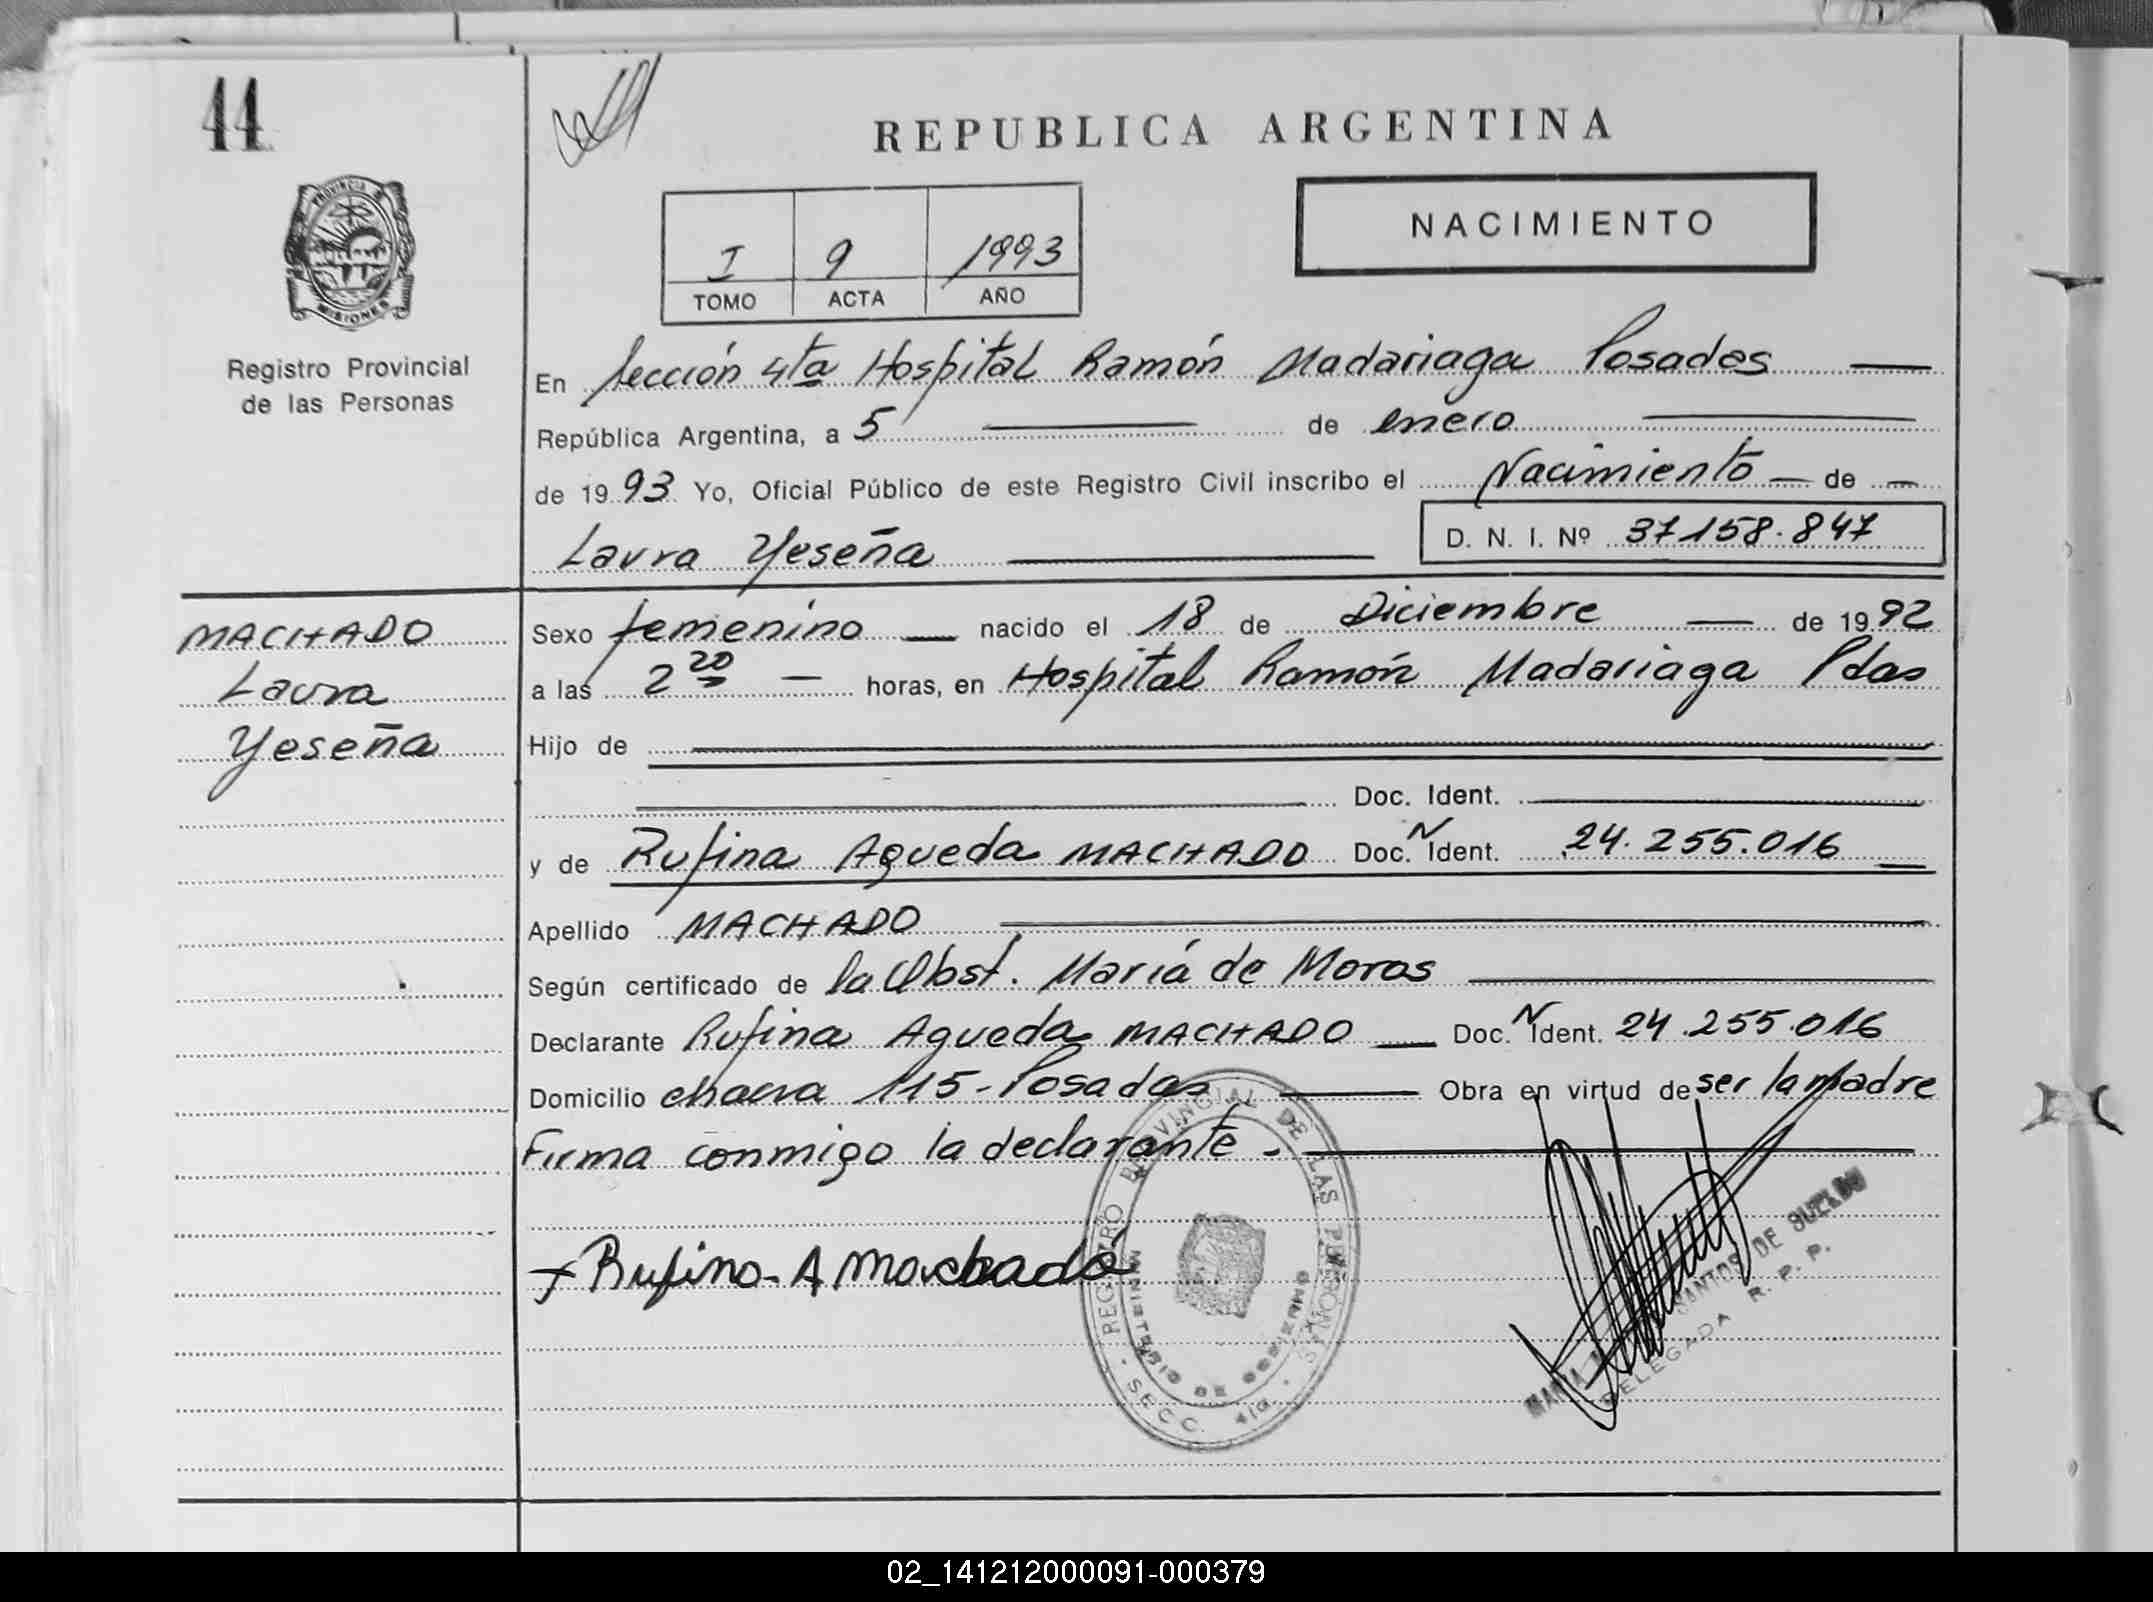 44
REPUBLICA ARGENTINA
PROVINCIA DE
MISIONES
NACIMIENTO
I 9 1993
TOMO ACTA AÑO
Registro Provincial
de las Personas
En Sección 4ta Hospital Ramón Madariaga Posadas
República Argentina, a 5 de enero
de 1993 Yo, Oficial Público de este Registro Civil inscribo el Nacimiento de
Laura Yeseña D. N. I. Nº 37158.847
MACHADO
Laura
Yeseña
Sexo femenino nacido el 18 de Diciembre de 1992
a las 2 20 horas, en Hospital Ramón Madariaga Pdas
Hijo de
Doc. Ident.
y de Rufina Agueda MACHADO Doc. N Ident. 24.255.016
Apellido MACHADO
Según certificado de la Obst. María de Moras
Declarante Rufina Agueda MACHADO Doc. N Ident. 24.255.016
Domicilio chacra 115 - Posadas Obra en virtud de ser la Madre
Firma conmigo la declarante.
Rufino - A Machado
REGISTRO PROVINCIAL DE LAS PERSONAS
MINISTERIO DE GOBIERNO
SECC. 4ta.
MARIA SANTOS DE
DELEGADA R. P. P.
02_141212000091-000379